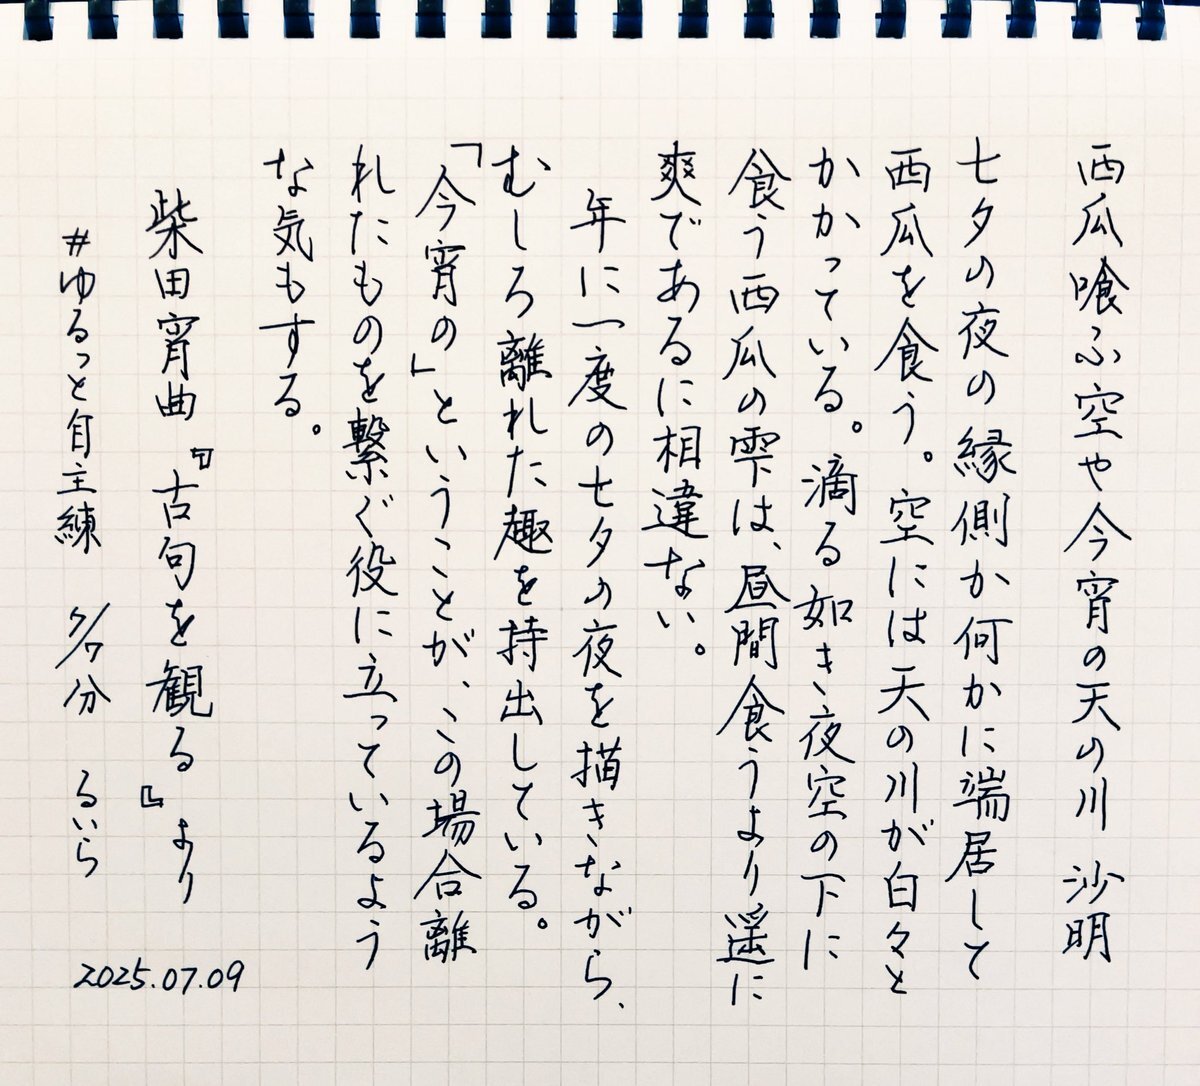 西瓜喰ふ空や今宵の天の川　沙明
七夕の夜の縁側か何かに端居して
西瓜を食う。空には天の川が白々と
かかっている。滴る如き夜空の下に
食う西瓜の雫は、昼間食うより遥に
爽であるに相違ない。
年に一度の七夕の夜を描きながら、
むしろ離れた趣を持出している。
「今宵の」ということが、この場合離
れたものを繋ぐ役に立っているよう
な気もする。
柴田宵曲『古句を観る』より
#ゆるっと自主練　7/7分　るいら
2025.07.09